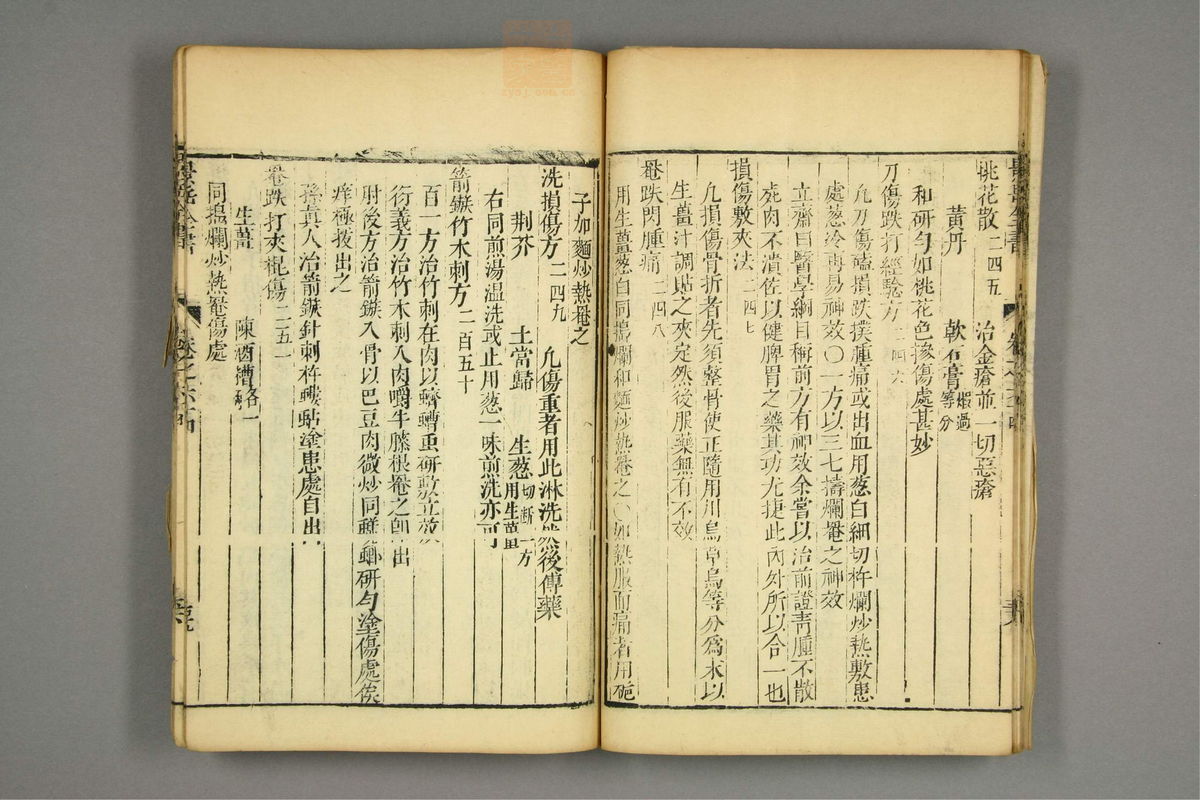 桃花散二四五　治金瘡并一切惡瘡
黃丹　軟石膏煅過等分
和研勻如桃花色摻傷處甚妙
刀傷跌打經驗方二四六
凡刃傷磕損跌撲腫痛或出血用葱白細切杵爛炒熱敷患
處葱冷再易神效〇一方以三七擣爛罨之神效
立齋曰醫學綱目稱前方有神效余嘗以治前證青腫不散
死肉不潰佐以健脾胃之藥其功尤捷此內外所以合一也
損傷敷夾法二四七
凡損傷骨折者先須整骨使正隨用川烏草烏等分爲末以
生薑汁調貼之夾定然後服藥無有不效
罨跌閃腫痛二四八
用生薑葱白同搗爛和麵炒熱罨之〇如熱服而痛者用梔
子加麵炒熱罨之
洗損傷方二四九　凡傷重者用此淋洗然後傅藥
荆芥　土當歸　生葱切斷一方用生薑
右同煎湯溫洗或止用葱一味煎洗亦可
箭鏃竹木刺方二百五十
百一方治竹刺在肉以蠐螬虫研敷立效
衍義方治竹木刺入肉嚼牛膝根罨之即出
肘後方治箭鏃入骨以巴豆肉微炒同蜣螂研勻塗傷處俟
痒極拨出之
孫真人治箭鏃針刺杵螻蛄塗患處自出
罨跌打夾棍傷二五一
生薑　陳酒糟各一
同搗爛炒熱罨傷處
景岳全書
卷之六十四